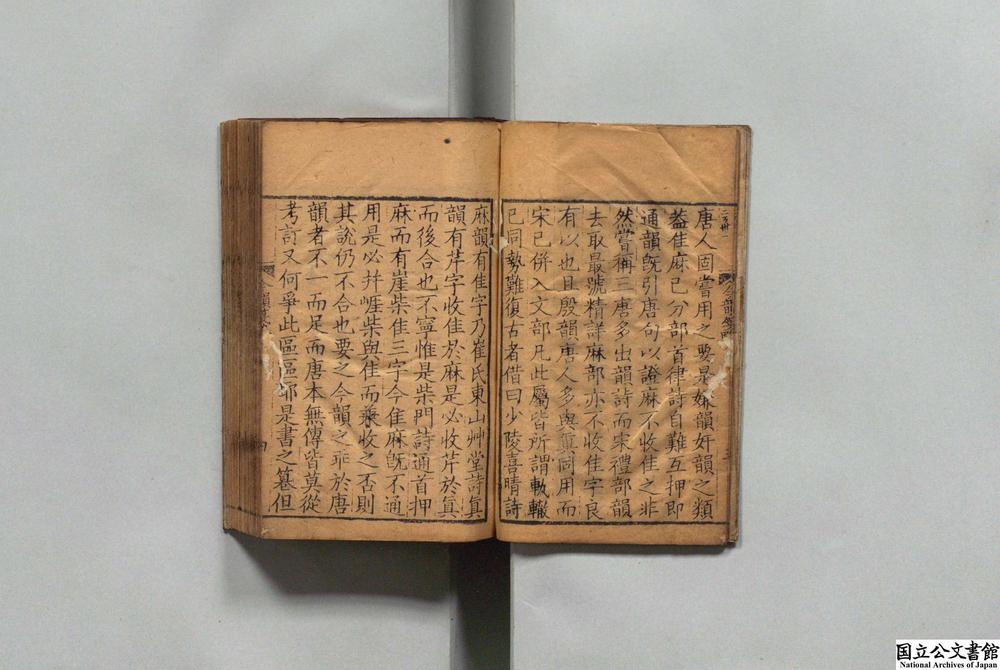 唐人固嘗用之要是嫌韻奸韻之類
葢佳麻已分部首律詩自難互押卽
通韻旣引唐句以證麻不收佳之非
然嘗稱三唐多出韻詩而宋禮部韻
去取最號精詳麻部亦不收佳字良
有以也且殷韻唐人多與眞同用而
宋已併入文部凡此屬皆所謂軌轍
已同勢難復古者借曰少陵喜晴詩
麻韻有佳字乃崔氏東山艸堂詩眞
韻有芹字收佳於麻是必收芹於眞
而後合也不寧惟是柴門詩通首押
麻而有崖柴佳三字今佳麻旣不通
用是必幷崕柴與佳而兼收之否則
其說仍不合也要之今韻之乖於唐
韻者不一而足而唐本無傳皆莫從
考訂又何爭此區區耶是書之纂但
国立公文書館
National Archives of Japan